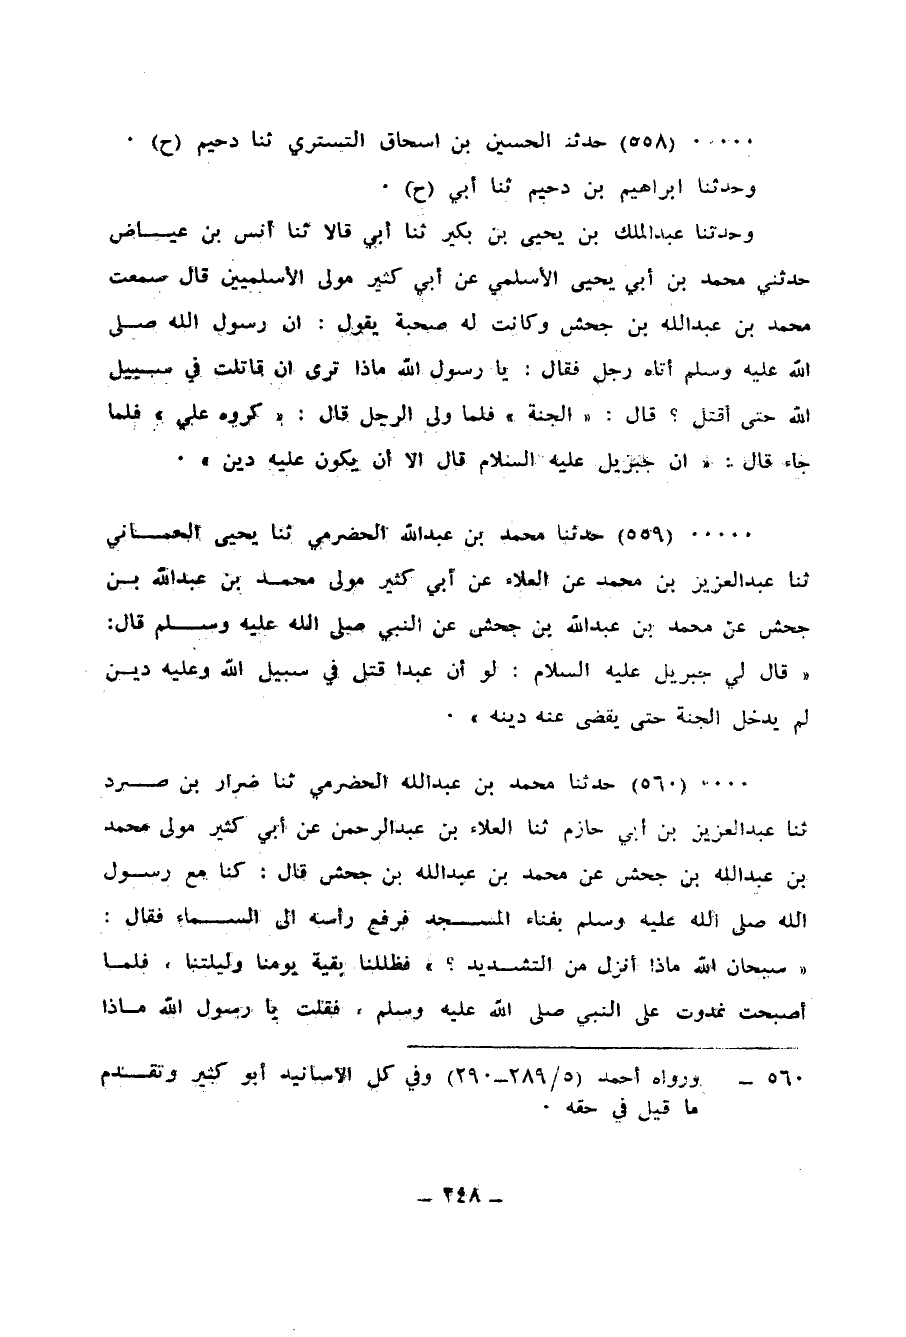 ٠٠٠٠٠ (٥٥٨) حدثنا الحسين بن اسحاق التستري ثنا دحيم (ح) ٠
وحدثنا ابراهيم بن دحيم ثنا أبي (ح) ٠
وحدثنا عبدالملك بن يحيى بن بكير ثنا أبي قالا ثنا أنس بن عيـــاض
حدثني محمد بن أبي يحيى الأسلمي عن أبي كثير مولى الأسلميين قال سمعت
محمد بن عبدالله بن جحش وكانت له صحبة يقول : ان رسول الله صلــى
الله عليه وسلم أتاه رجل فقال : يا رسول الله ماذا ترى ان قاتلت في سبيل
الله حتى أقتل ؟ قال : « الجنة » فلما ولى الرجل قال : « كروه علي » فلما
جاء قال : « ان جبريل عليه السلام قال الا أن يكون عليه دين » ٠
٠٠٠٠٠ (٥٥٩) حدثنا محمد بن عبدالله الحضرمي ثنا يحيى الحمـــاني
ثنا عبدالعزيز بن محمد عن العلاء عن أبي كثير مولى محمــد بن عبدالله بــن
جحش عن محمد بن عبدالله بن جحش عن النبي صلى الله عليه وســـلم قال:
« قال لي جبريل عليه السلام : لو أن عبدا قتل في سبيل الله وعليه ديــن
لم يدخل الجنة حتى يقضى عنه دينه » ٠
٠٠٠٠٠ (٥٦٠) حدثنا محمد بن عبدالله الحضرمي ثنا ضرار بن صـــرد
ثنا عبدالعزيز بن أبي حازم ثنا العلاء بن عبدالرحمن عن أبي كثير مولى محمد
بن عبدالله بن جحش عن محمد بن عبدالله بن جحش قال : كنا مع رســول
الله صلى الله عليه وسلم بفناء المســجد فرفع رأسه الى الســـماء فقال :
« سبحان الله ماذا أنزل من التشــديد ؟ » فظللنا بقية يومنا وليلتنا ، فلمــا
أصبحت غدوت على النبي صلى الله عليه وسلم ، فقلت يا رسول الله مــاذا
٥٦٠ ــ ورواه أحمد (٥/٢٨٩ــ٢٩٠) وفي كل الاسانيد أبو كثير وتقــدم
ما قيل في حقه ٠
ــ ٢٤٨ ــ